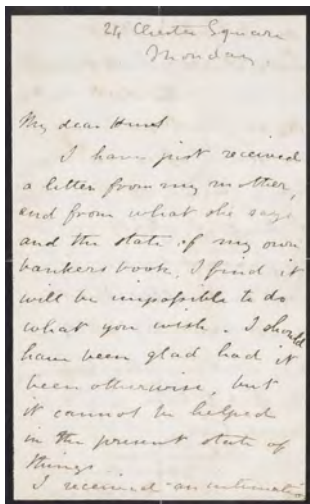 24 Chester Square
Monday.
My dear Hunt
I have just received
a letter from my mother,
and from what she says
and the state of my own
bankers book, I find it
will be impossible to do
what you wish. I should
have been glad had it
been otherwise, but
it cannot be helped
in the present state of
things.
I received an intimation